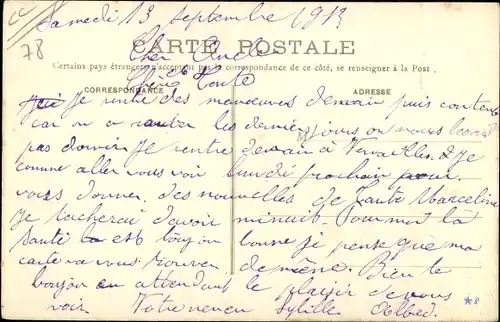 Samedi 13 septembre 1913
78
CARTE POSTALE
Cher Oncle
Certains pays étrangers n'acceptent pas la correspondance de ce côté, se renseigner à la Post
Chère Tante
CORRESPONDANCE
ADRESSE
Je rentre des manœuvres demain puis content
car on a les derniers jours on nous
pas dormir. Je rentre demain à Versailles. Je
comme aller vous voir lundi prochain pour
vous donner des nouvelles de Tante Marceline
Je tacherai d'avoir minuit. Pour moi la
Santé est toujou bonne je pense que ma
carte va vous trouver de même. Bien le
bonjou en attendant le plaisir de vous
voir Votre neveu